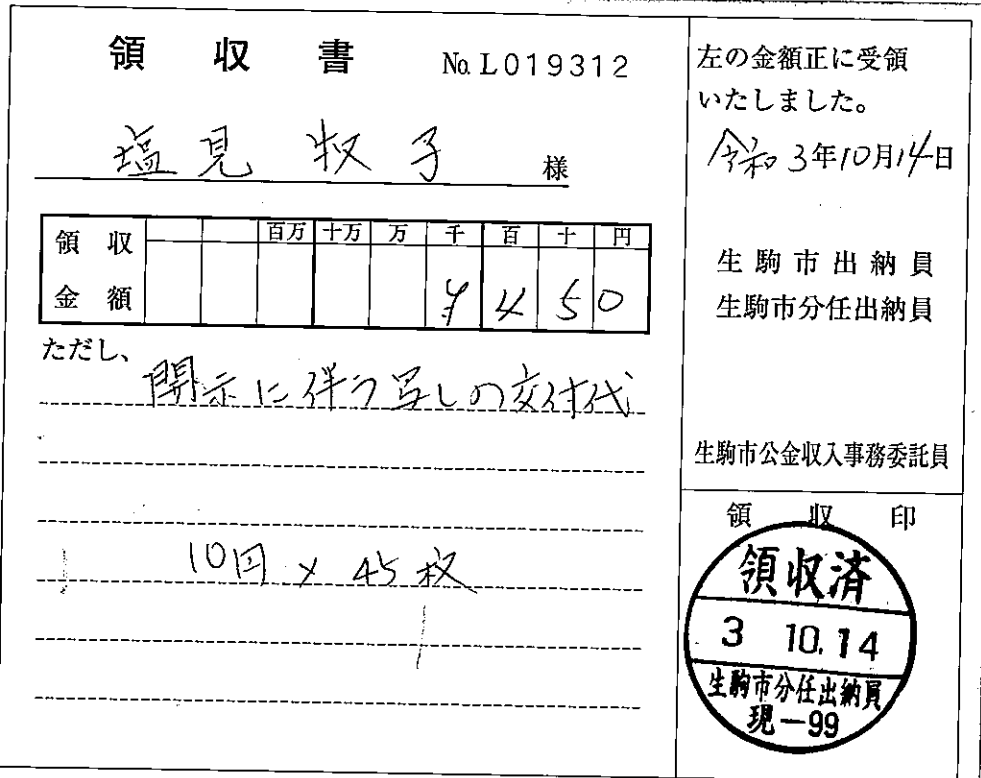 領収書 No.L019312
塩見牧子 様
領収金額
百万 十万 万 千 百 十 円
¥450
ただし、
開示に伴う写しの交付代
10円×45枚
左の金額正に受領
いたしました。
令和3年10月14日
生駒市出納員
生駒市分任出納員
生駒市公金収入事務委託員
領収印
領収済
3 10.14
生駒市分任出納員
現-99